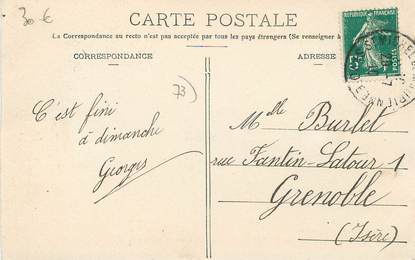 30 €
CARTE POSTALE
La Correspondance au recto n'est pas acceptée par tous les pays étrangers (Se renseigner à
CORRESPONDANCE
ADRESSE
REPUBLIQUE FRANÇAISE
POSTES
73
C'est fini
à dimanche
Georges
Mlle Burlet
rue Fantin-Latour 1
Grenoble
(Isère)